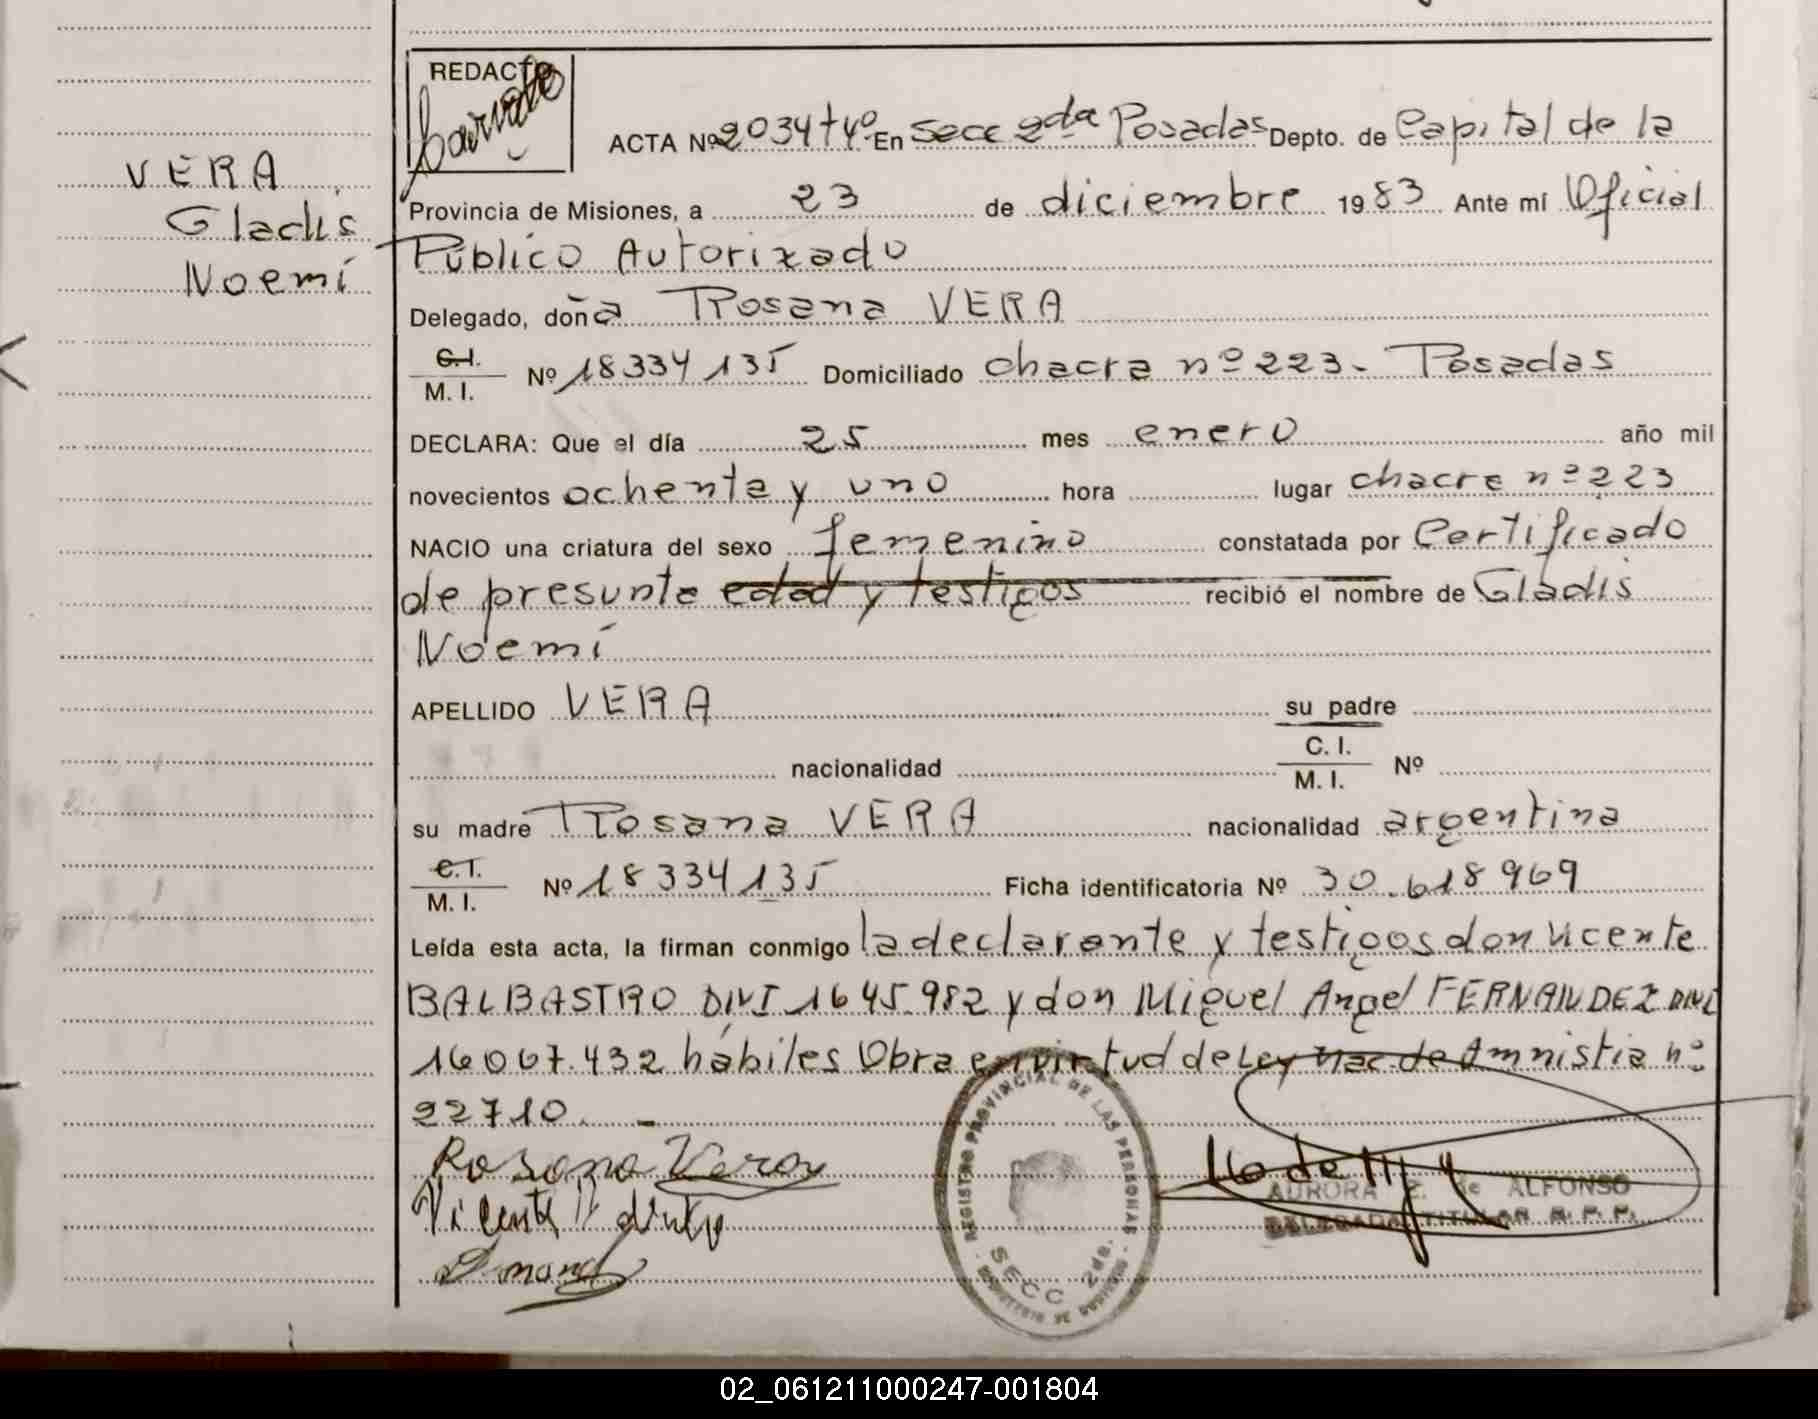 REDACTO
ACTA Nº 2034 tº 4º En Secc 2da Posadas Depto. de Capital de la
VERA
Gladis
Noemí
Provincia de Misiones, a 23 de diciembre 1983 Ante mí Oficial
Público Autorizado
Delegado, doña Rosana VERA
C.I.
M. I. Nº 18334135 Domiciliado chacra nº 223- Posadas
DECLARA: Que el día 25 mes enero año mil
novecientos ochenta y uno hora lugar chacra nº 223
NACIO una criatura del sexo femenino constatada por Certificado
de presunta edad y testigos recibió el nombre de Gladis
Noemí
APELLIDO VERA su padre
nacionalidad C. I. M. I. Nº
su madre Rosana VERA nacionalidad argentina
C.I.
M. I. Nº 18334135 Ficha identificatoria Nº 30.618969
Leída esta acta, la firman conmigo la declarante y testigos don Vicente
BALBASTRO DNI 1645.982 y don Miguel Angel FERNANDEZ DNI
16007.432 hábiles Obra en virtud de Ley Nac. de Amnistia nº
22710.-
Rosana Vera
Vicente
REGISTRO PROVINCIAL DE LAS PERSONAS
SECC 2da.
AURORA E. de ALFONSO
DELEGADA TITULAR R. P. P.
02_061211000247-001804